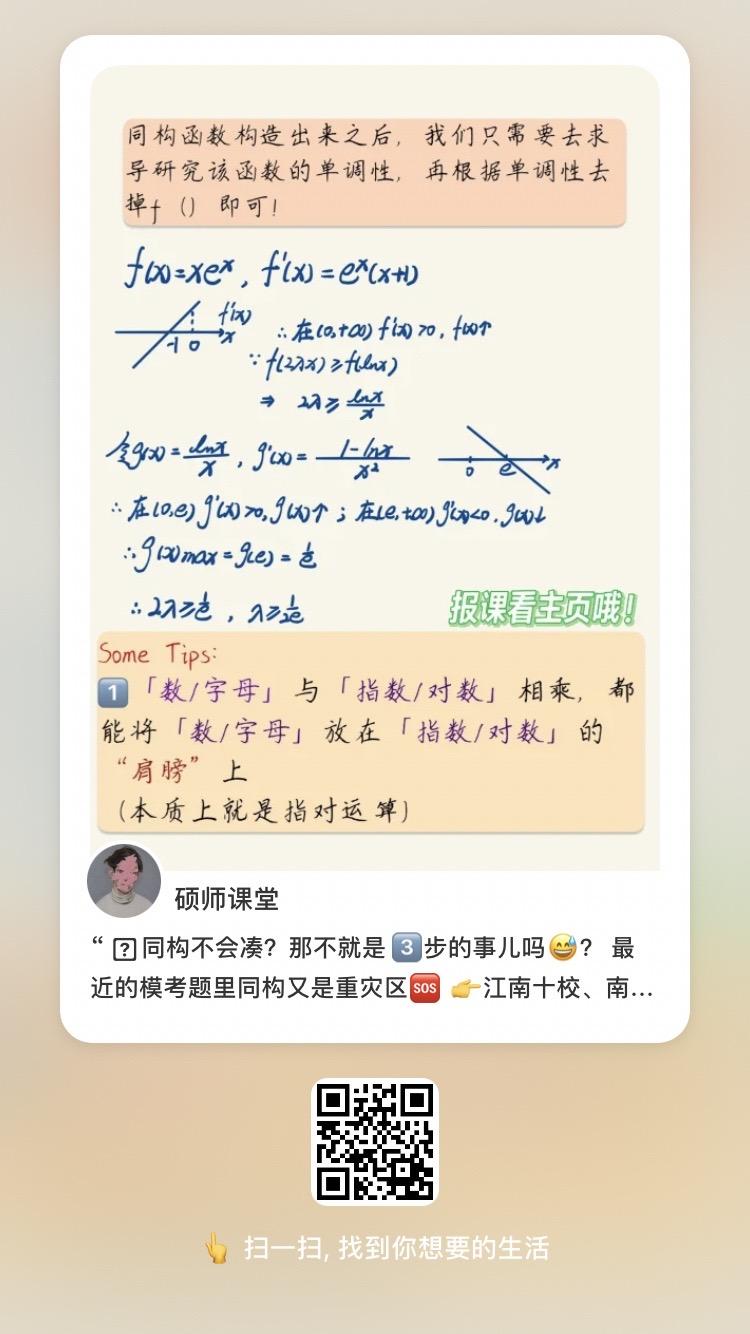 同构函数构造出来之后，我们只需要去求
导研究该函数的单调性，再根据单调性去
掉f（）即可！
f(x)=xeˣ，f'(x)=eˣ(x+1)
f'(x)
-1 0 x
∴在(0,+∞) f'(x)>0，f(x)↑
∵f(2λx)≥f(lnx)
⇒ 2λ≥lnx/x
令g(x)=lnx/x，g'(x)=(1-lnx)/x²
0 e x
∴在(0,e) g'(x)>0,g(x)↑；在(e,+∞) g'(x)<0,g(x)↓
∴g(x)max=g(e)=1/e
∴2λ≥1/e，λ≥1/2e
报课看主页哦！
Some Tips:
1「数/字母」与「指数/对数」相乘，都
能将「数/字母」放在「指数/对数」的
“肩膀”上
（本质上就是指对运算）
硕师课堂
“ ?同构不会凑？那不就是3️⃣步的事儿吗😅？ 最
近的模考题里同构又是重灾区🆘 👉江南十校、南...
👆 扫一扫, 找到你想要的生活